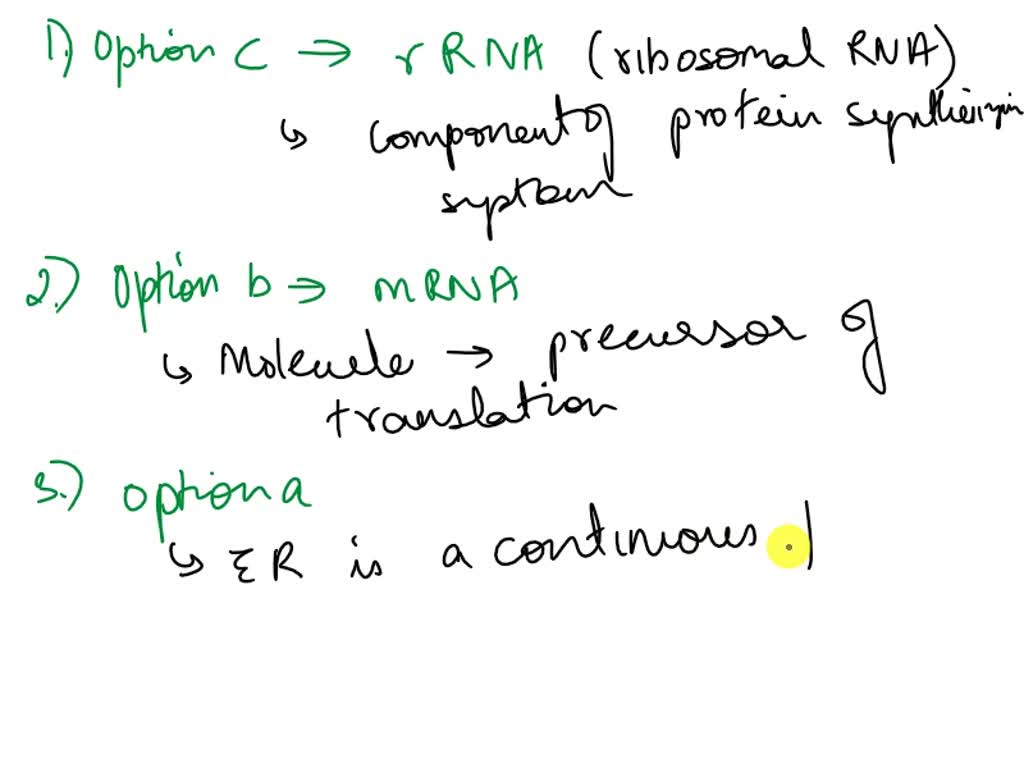 1.) Option c → rRNA (ribosomal RNA)
↳ component of protein synthesizing
system
2.) Option b → mRNA
↳ Molecule → precursor of
translation
3.) option a
↳ ER is a continuous